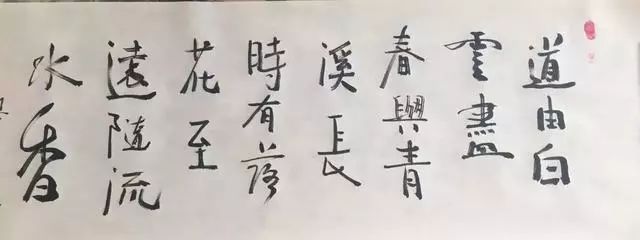 道由白
雲盡
春與青
溪長
時有落
花至
遠隨流
水香